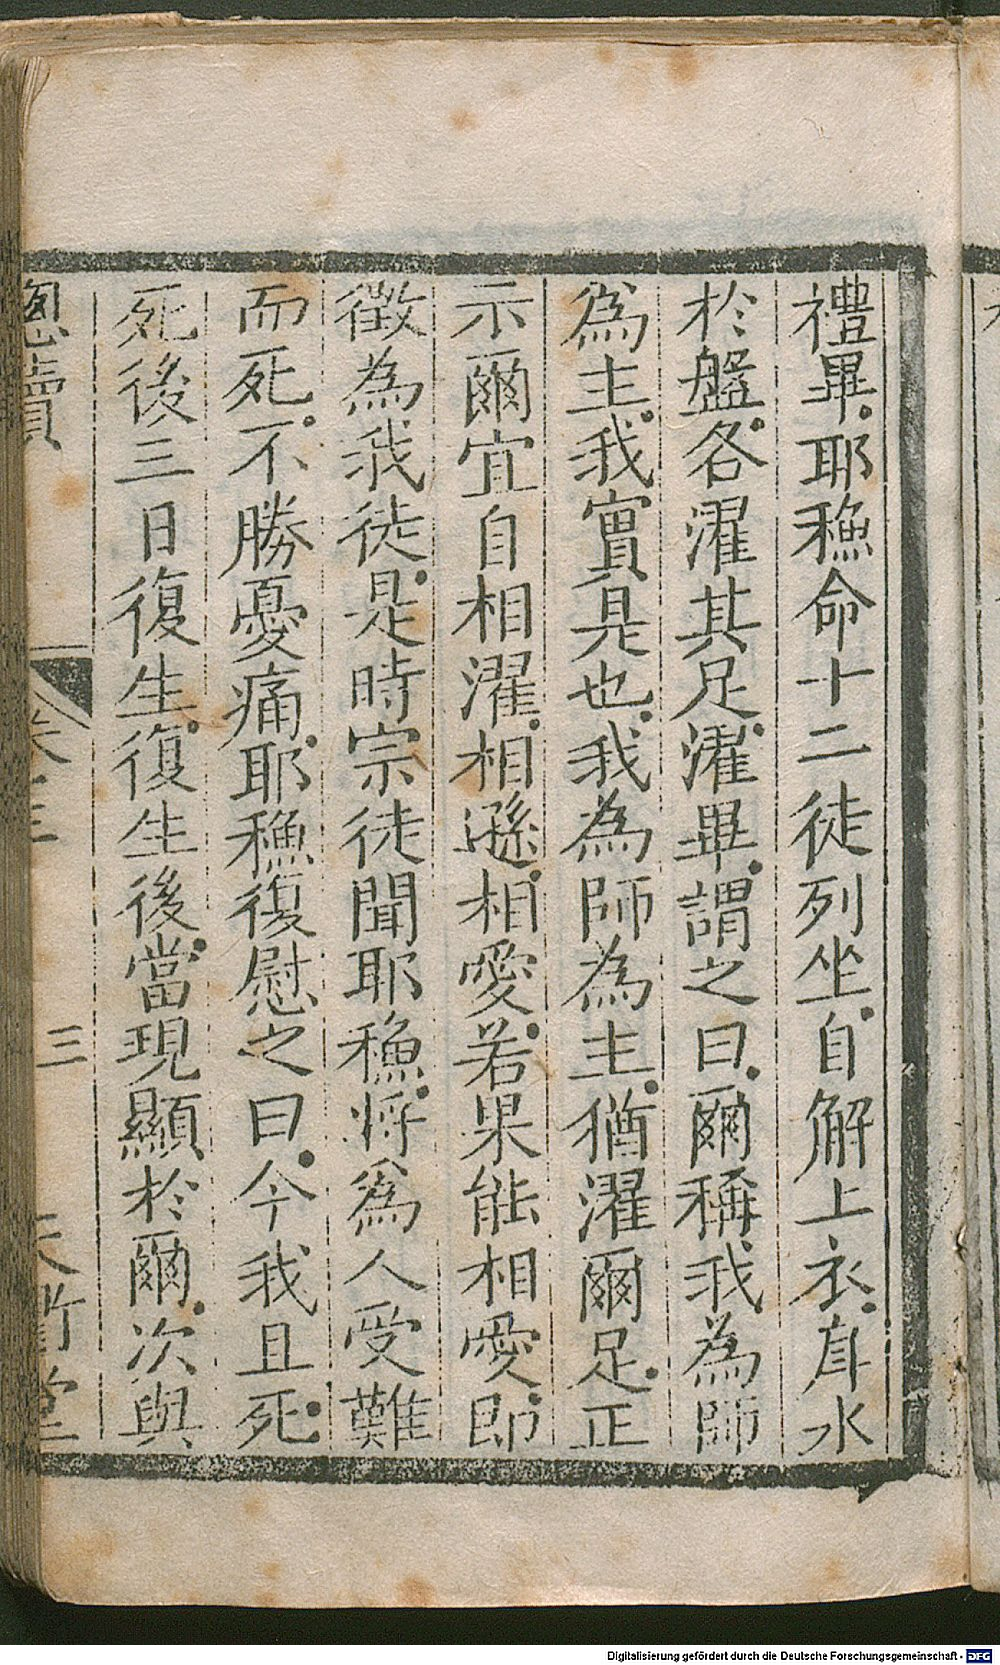 禮畢.耶穌命十二徒列坐.自解上衣.𥃩水
於盤.各濯其足.濯畢.謂之曰.爾稱我為師
為主.我實是也.我為師為主.猶濯爾足.正
示爾宜自相濯.相遜.相愛.若果能相愛.即
徵為我徒.是時宗徒聞耶穌.將為人受難
而死.不勝憂痛.耶穌復慰之曰.今我且死.
死後三日復生.復生後.當現顯於爾.次與
三
Digitalisierung gefördert durch die Deutsche Forschungsgemeinschaft - DFG